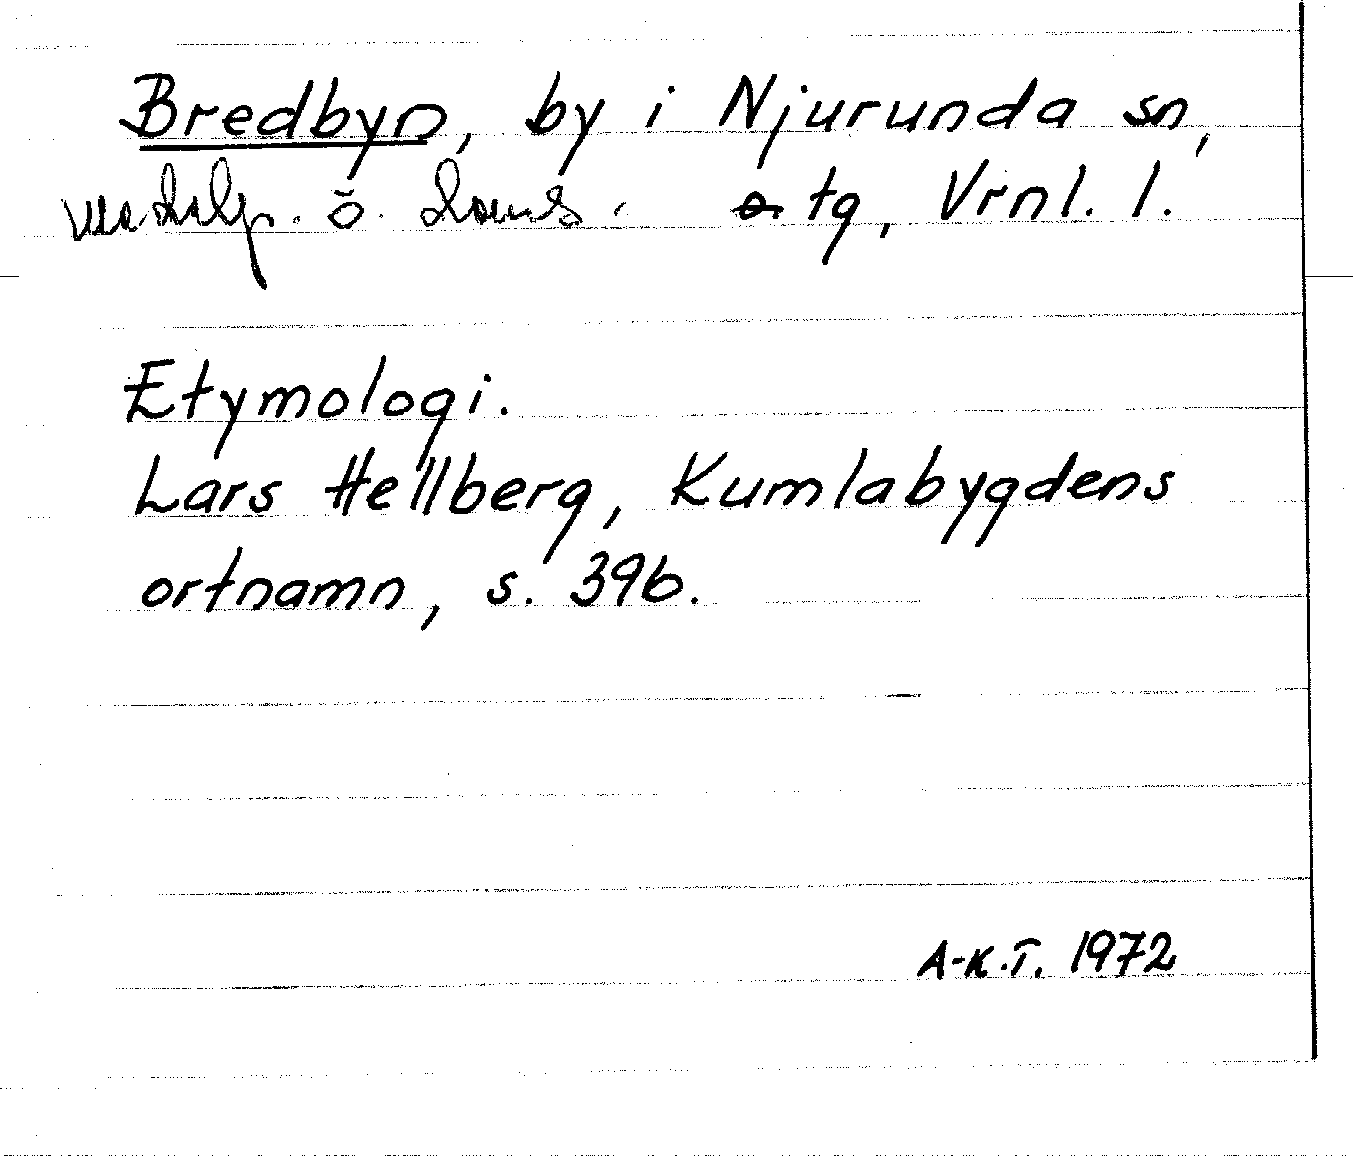 Bredbyn, by i Njurunda sn,
Medelp. ö. doms. o. tg, Vrnl. l.
Etymologi.
Lars Hellberg, Kumlabygdens
ortnamn, s. 39b.
A-K.T. 1972